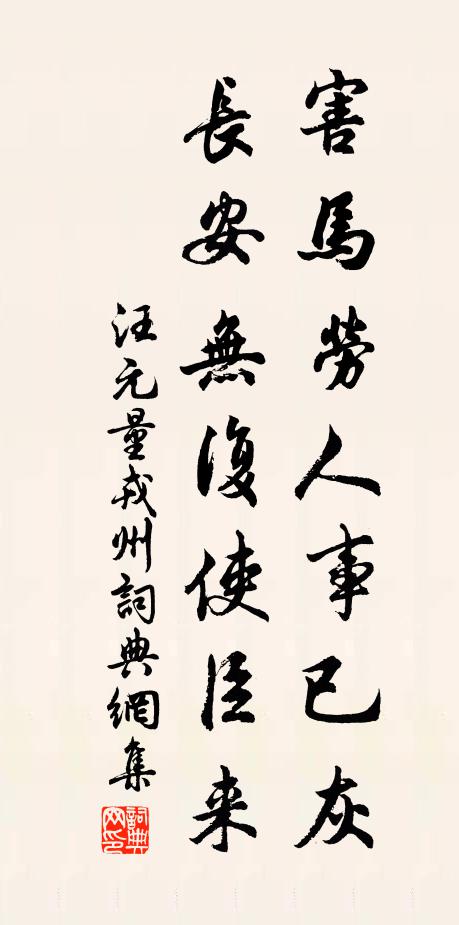 害馬勞人事已灰
長安無復使臣来
汪元量戎州詞典網集
詞典网印